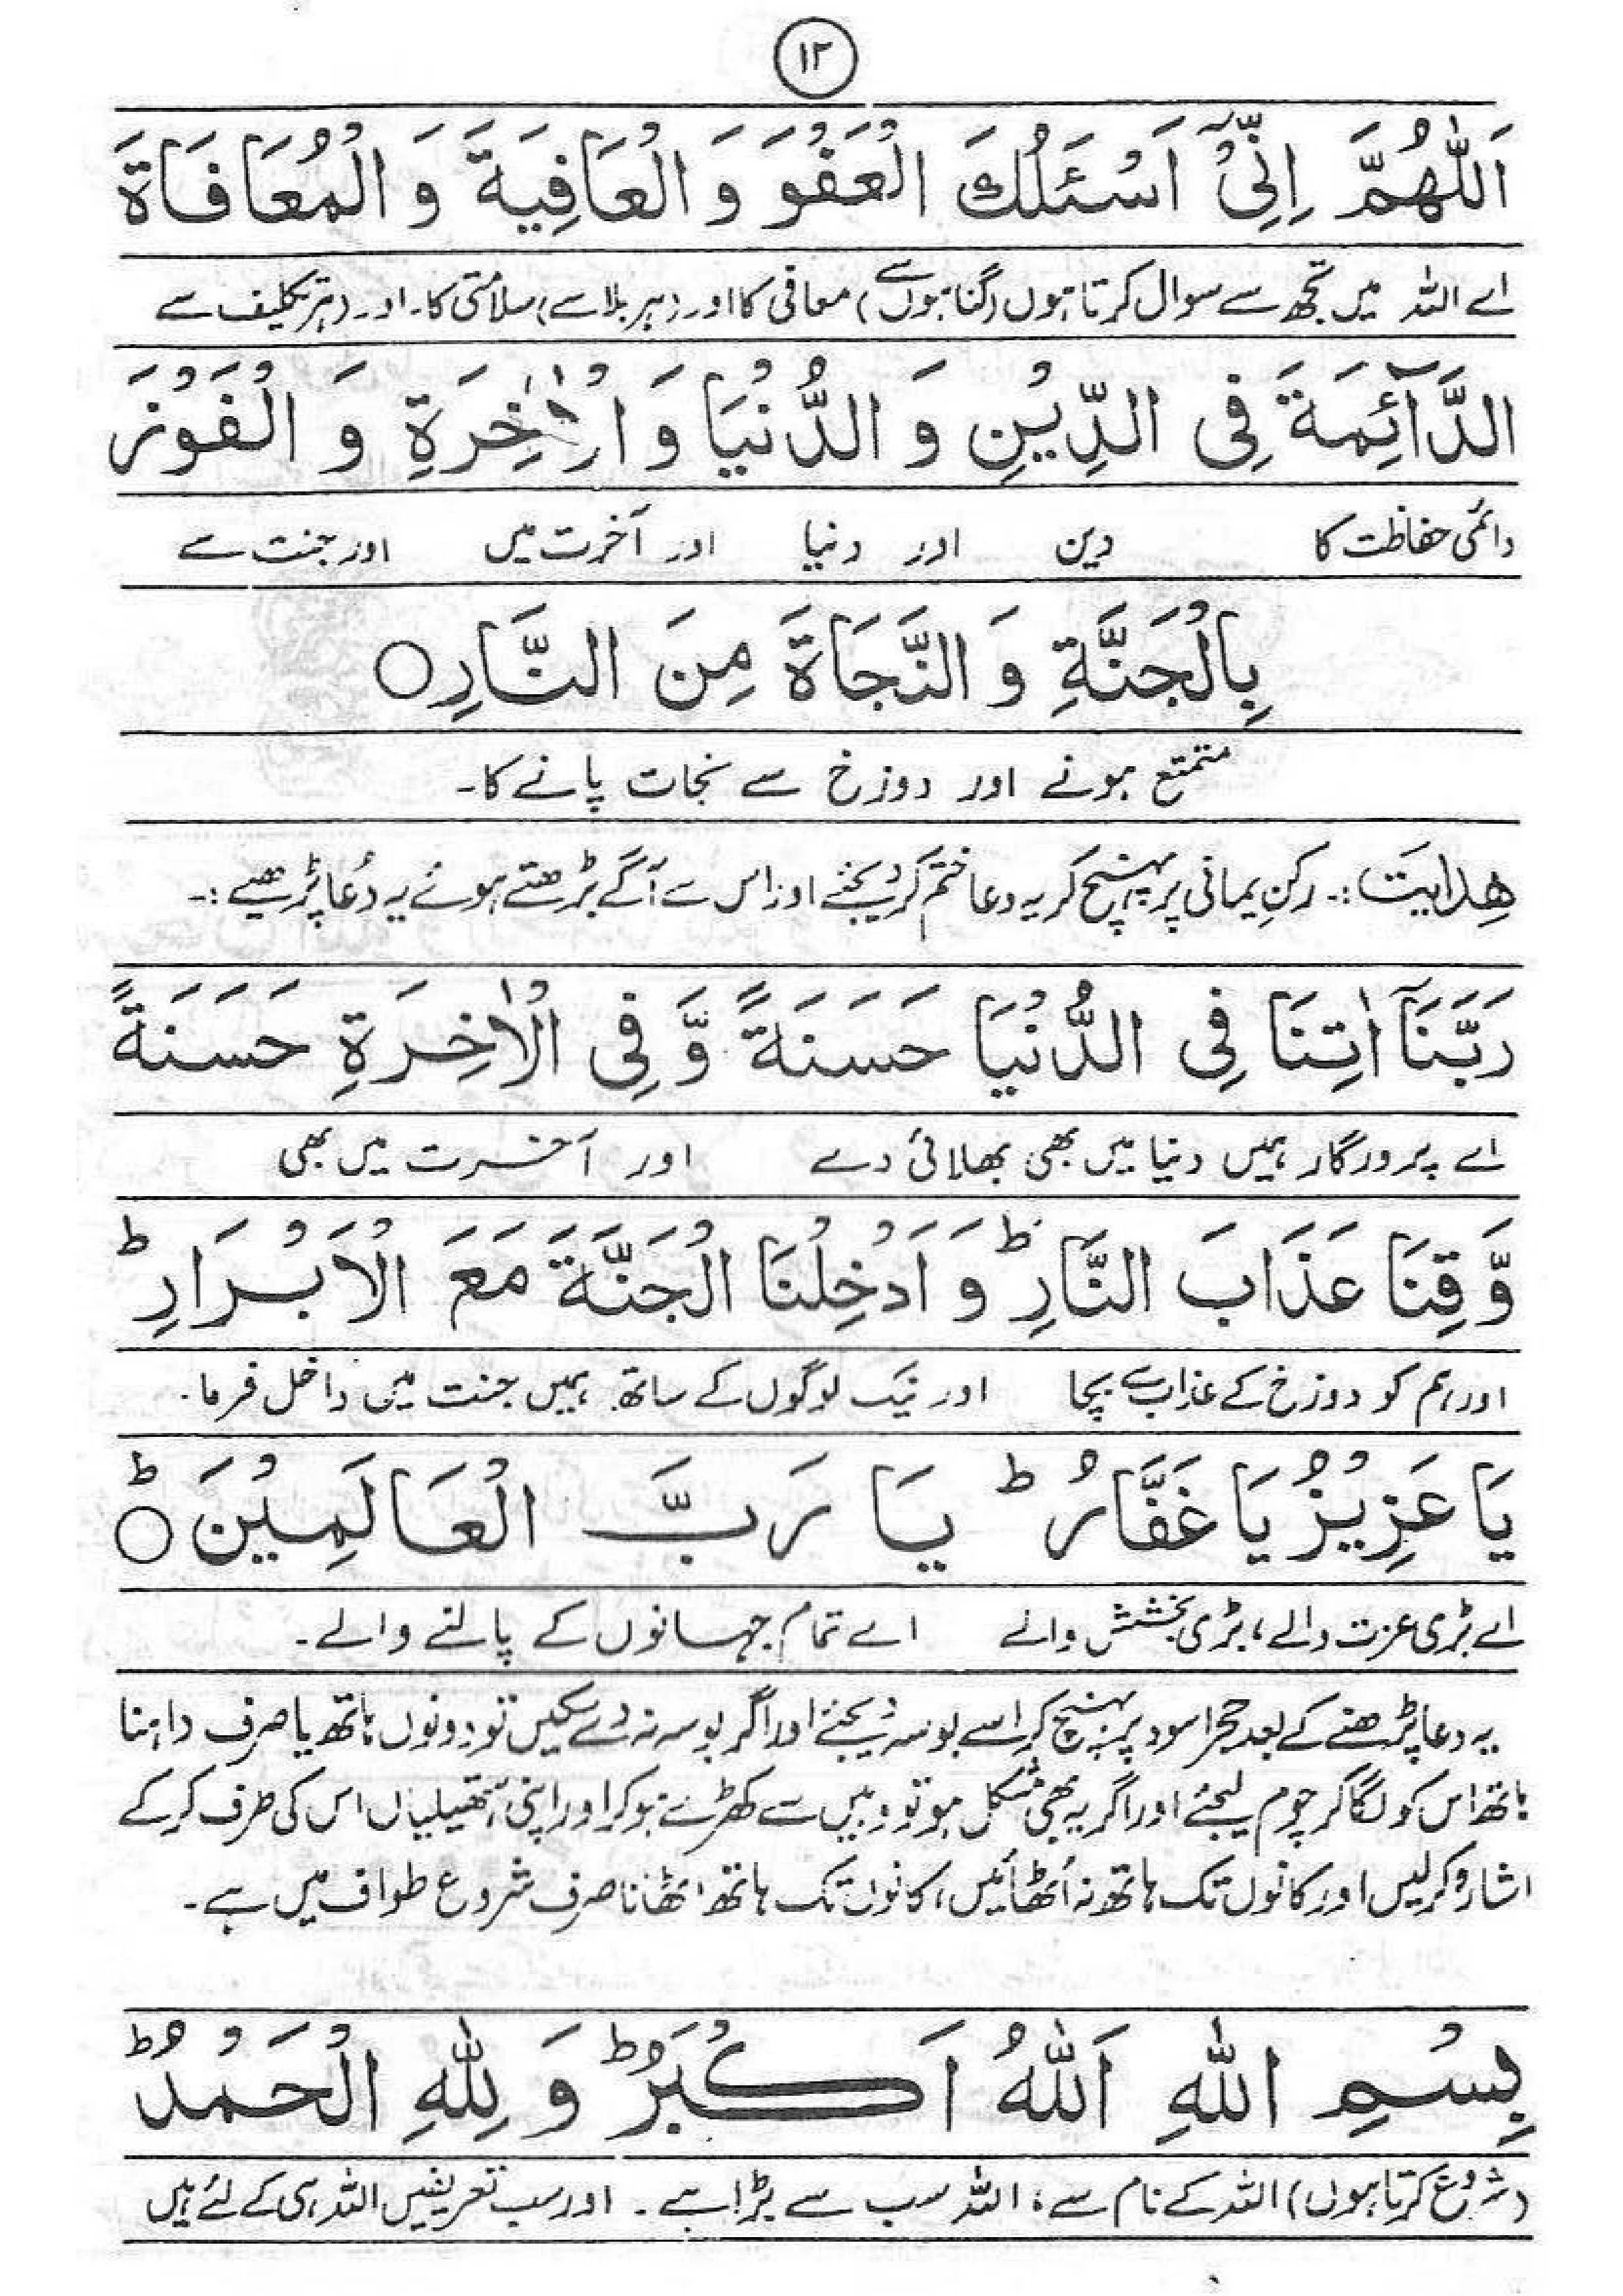 ۱۲
اَللّٰهُمَّ اِنِّیْٓ اَسْئَلُكَ الْعَفْوَ وَ الْعَافِيَةَ وَ الْمُعَافَاةَ
اے اللہ میں تجھ سے سوال کرتا ہوں (گناہوں سے) معافی کا اور (ہر بلا سے) سلامتی کا۔ اور (ہر تکلیف سے
الدَّآئِمَةَ فِی الدِّيْنِ وَ الدُّنْيَا وَ الْاٰخِرَةِ وَ الْفَوْزَ
دائمی حفاظت کا دین اور دنیا اور آخرت میں اور جنت سے
بِالْجَنَّةِ وَ النَّجَاةَ مِنَ النَّارِ○
متمتع ہونے اور دوزخ سے نجات پانے کا۔
ھدایت :۔ رکنِ یمانی پر پہنچ کر یہ دعا ختم کر دیجئے اور اس سے آگے بڑھتے ہوئے یہ دُعا پڑھیے :۔
رَبَّنَآ اٰتِنَا فِی الدُّنْيَا حَسَنَةً وَّ فِی الْاٰخِرَةِ حَسَنَةً
اے پروردگار ہمیں دنیا میں بھی بھلائی دے اور آخرت میں بھی
وَّ قِنَا عَذَابَ النَّارِ ؕ وَ اَدْخِلْنَا الْجَنَّةَ مَعَ الْاَبْرَارِ ؕ
اور ہم کو دوزخ کے عذاب سے بچا اور نیک لوگوں کے ساتھ ہمیں جنت میں داخل فرما۔
يَا عَزِيْزُ يَا غَفَّارُ ؕ يَا رَبَّ الْعَالَمِيْنَ ؕ○
اے بڑی عزت والے، بڑی بخشش والے اے تمام جہانوں کے پالنے والے۔
یہ دعا پڑھنے کے بعد حجر اسود پر پہنچ کر اسے بوسہ دیجئے اور اگر بوسہ نہ دے سکیں تو دونوں ہاتھ یا صرف داہنا
ہاتھ اس کو لگا کر چوم لیجئے اور اگر یہ بھی مشکل ہو تو وہیں سے کھڑے ہو کر اور اپنی ہتھیلیاں اس کی طرف کر کے
اشارہ کر لیں اور کانوں تک ہاتھ نہ اُٹھائیں، کانوں تک ہاتھ اٹھانا صرف شروع طواف میں ہے۔
بِسْمِ اللّٰهِ اَللّٰهُ اَكْبَرُ ؕ وَ لِلّٰهِ الْحَمْدُ ؕ
(شروع کرتا ہوں) اللہ کے نام سے، اللہ سب سے بڑا ہے۔ اور سب تعریفیں اللہ ہی کے لئے ہیں